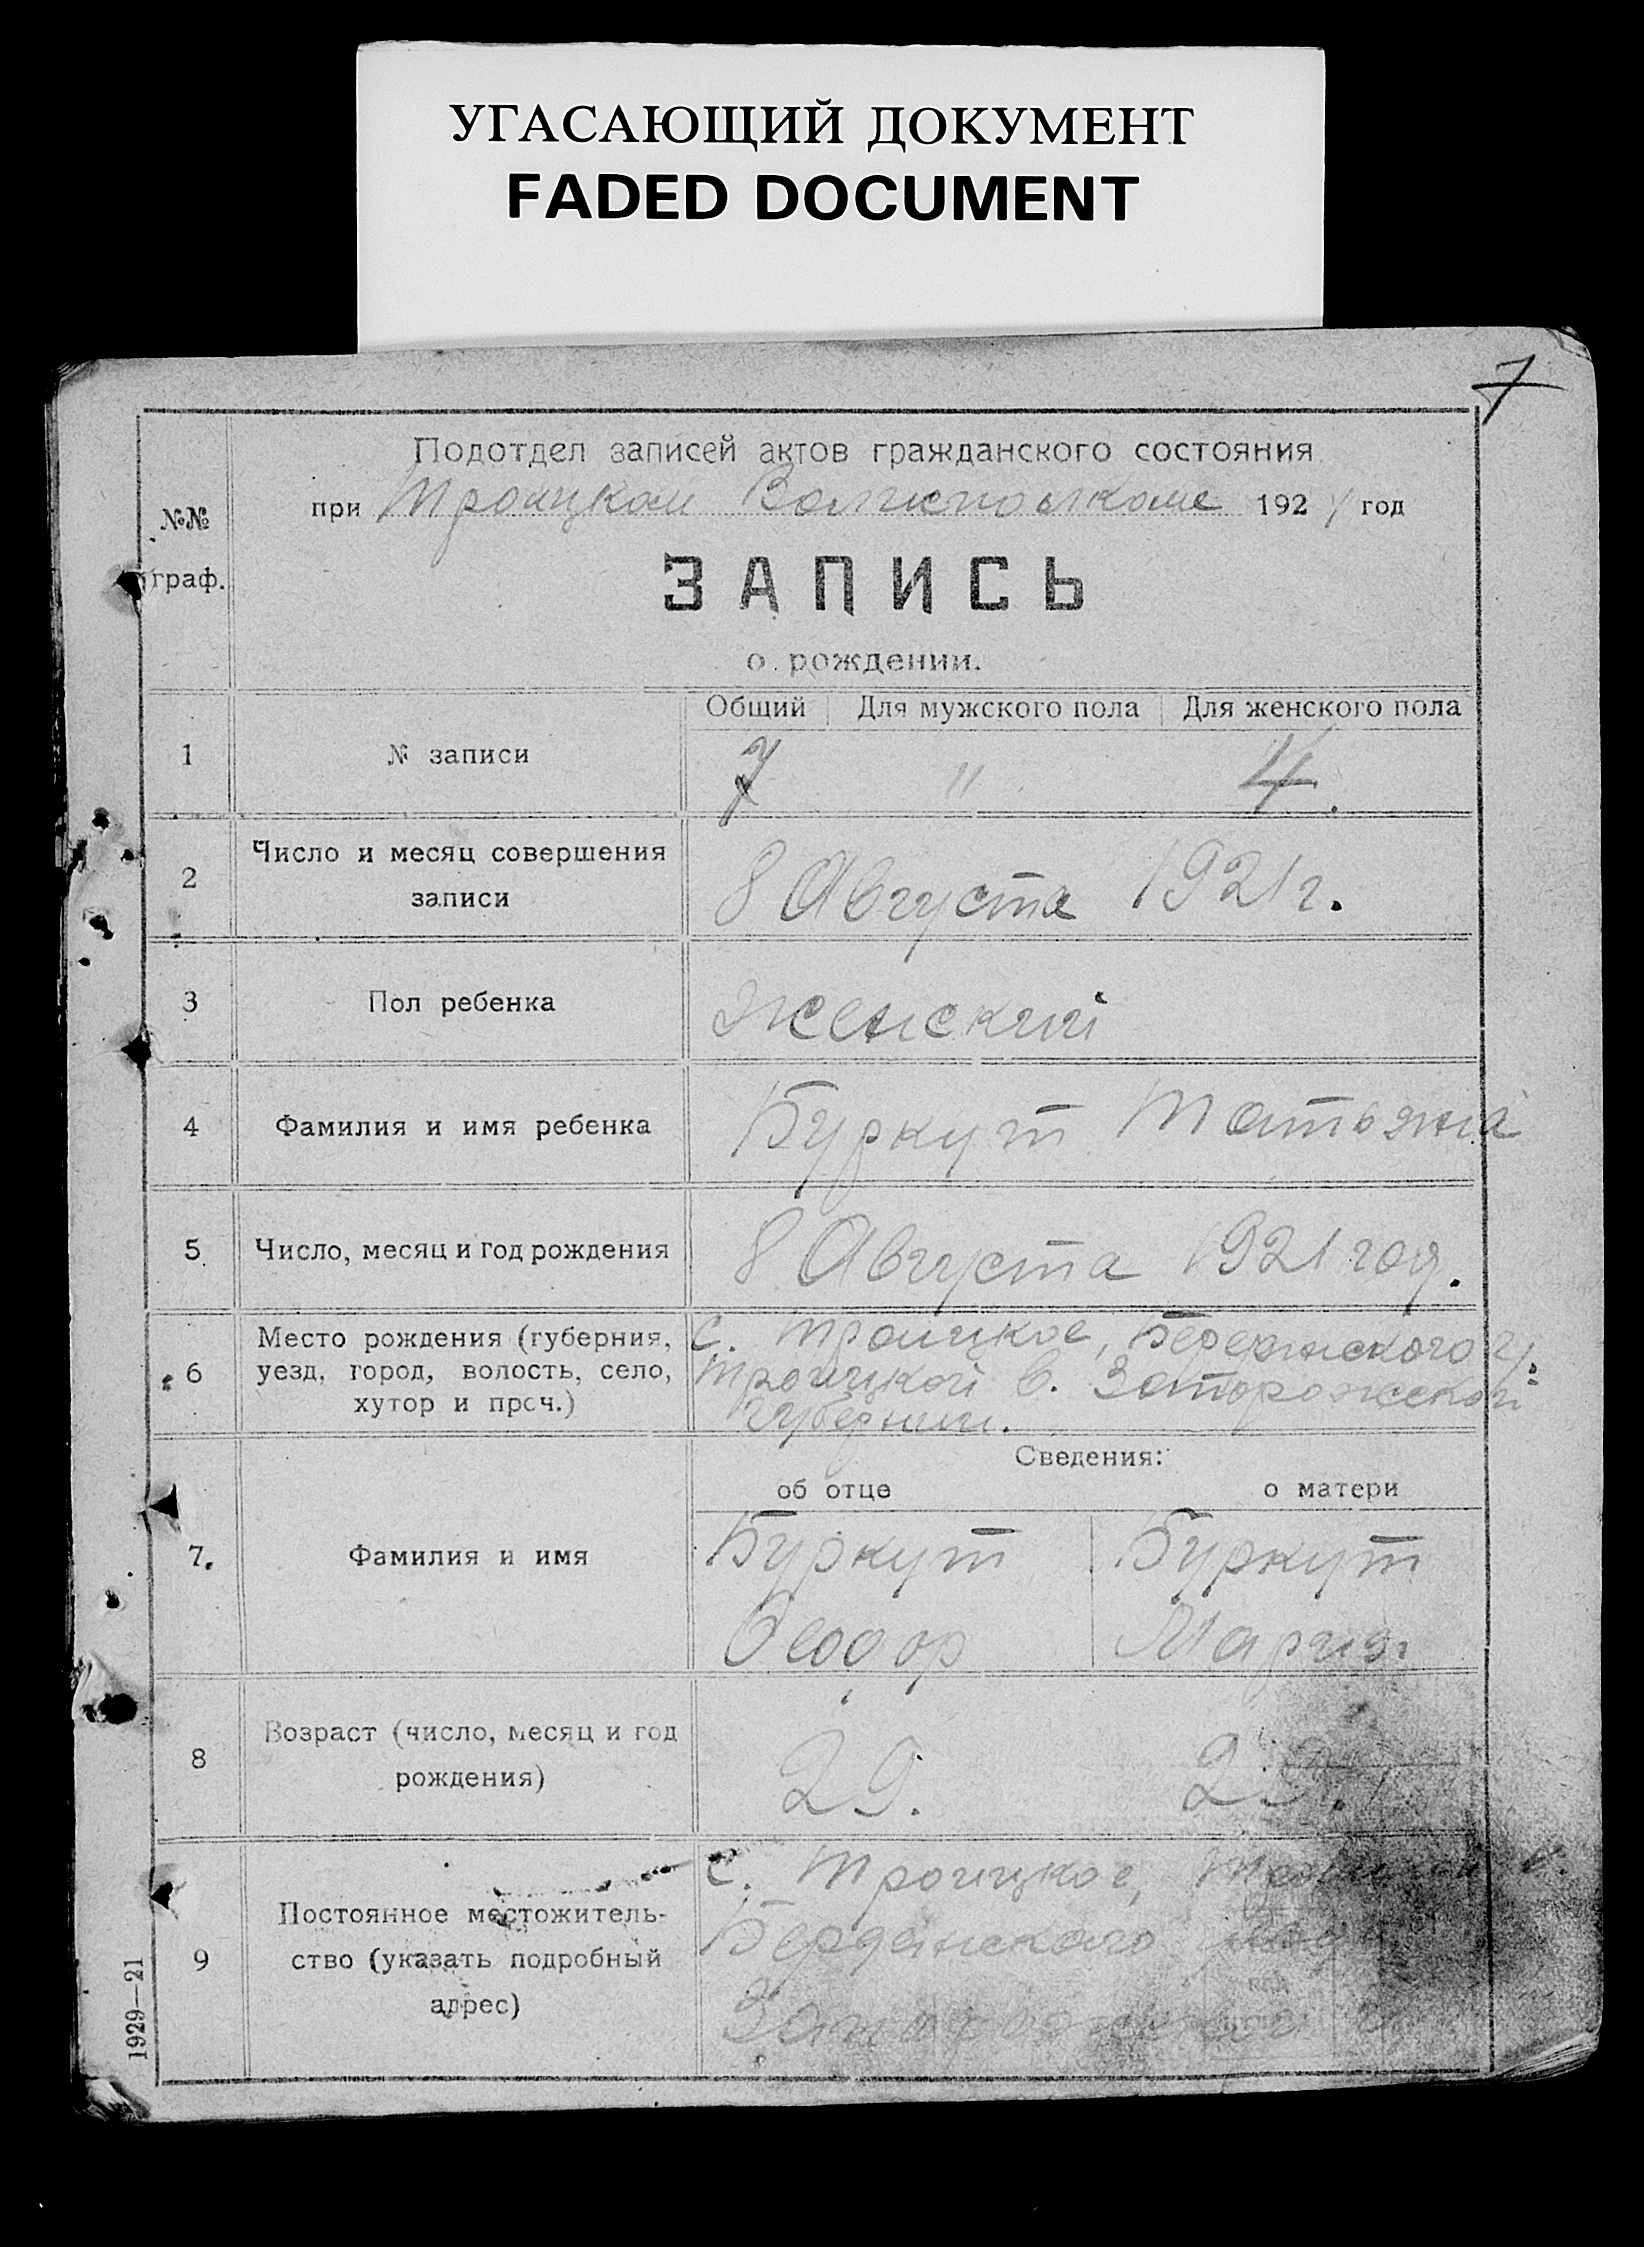 УГАСАЮЩИЙ ДОКУМЕНТ
FADED DOCUMENT
7
Подотдел записей актов гражданского состояния
№№ граф.
при Троицком Волисполкоме 1921 год
ЗАПИСЬ
о рождении.
Общий Для мужского пола Для женского пола
1 № записи 7 " 4.
2 Число и месяц совершения записи 8 Августа 1921 г.
3 Пол ребенка женский
4 Фамилия и имя ребенка Буркут Татьяна
5 Число, месяц и год рождения 8 Августа 1921 год.
6 Место рождения (губерния,
уезд, город, волость, село,
хутор и проч.)
с. Троицкое, Бердянского у.
Троицкой в. Запорожской
губернии.
Сведения:
об отце о матери
7. Фамилия и имя
Буркут Буркут
Феодор Мария
8 Возраст (число, месяц и год
рождения)
29. 29.
9 Постоянное местожитель-
ство (указать подробный
адрес)
с. Троицкое,
Бердянского
Запорожской
1929—21